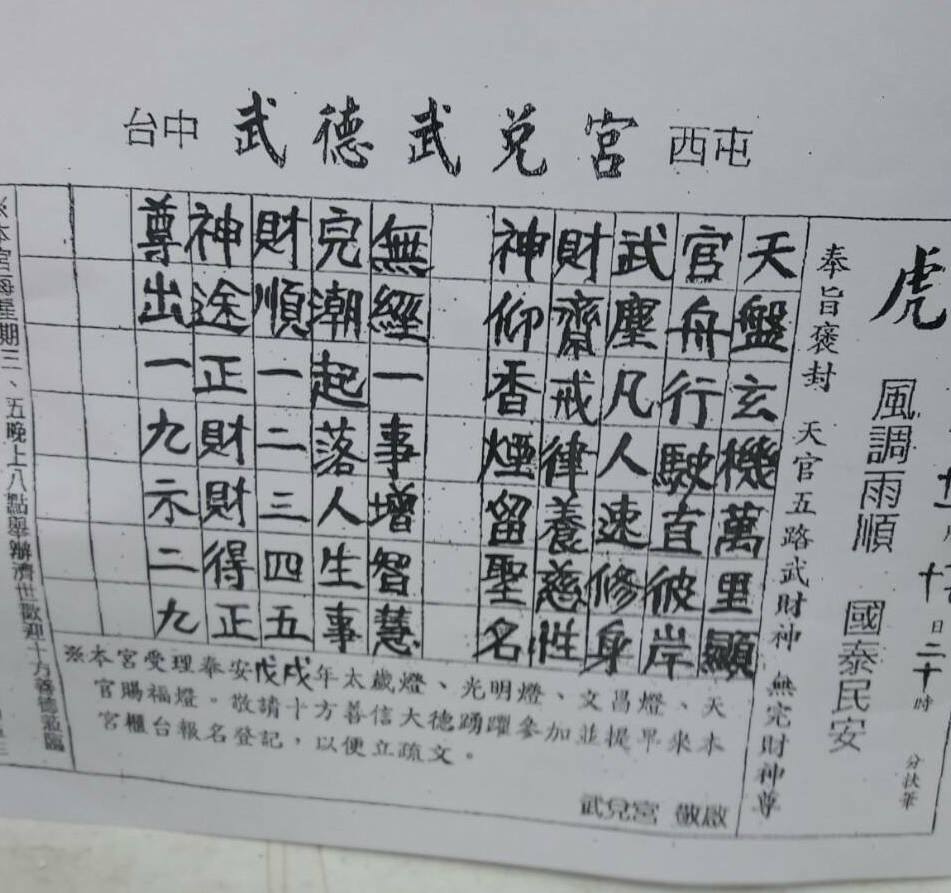 台中 武德武兌宮 西屯
虎
十日二十時
分扶筆
風調雨順 國泰民安
奉旨褒封 天官五路武財神 無完財神尊
天盤玄機萬里顯
官舟行駛直彼岸
武塵凡人速修身
財齋戒律養慈性
神仰香煙留聖名
無經一事增智慧
完潮起落人生事
財順一二三四五
神途正財財得正
尊出一九示二九
※本宮受理奉安戊戌年太歲燈、光明燈、文昌燈、天
官賜福燈。敬請十方善信大德踴躍參加並提早來本
宮櫃台報名登記，以便立疏文。
武兌宮 敬啟
※本宮每星期三、五晚上八點舉辦濟世歡迎十方善德蒞臨